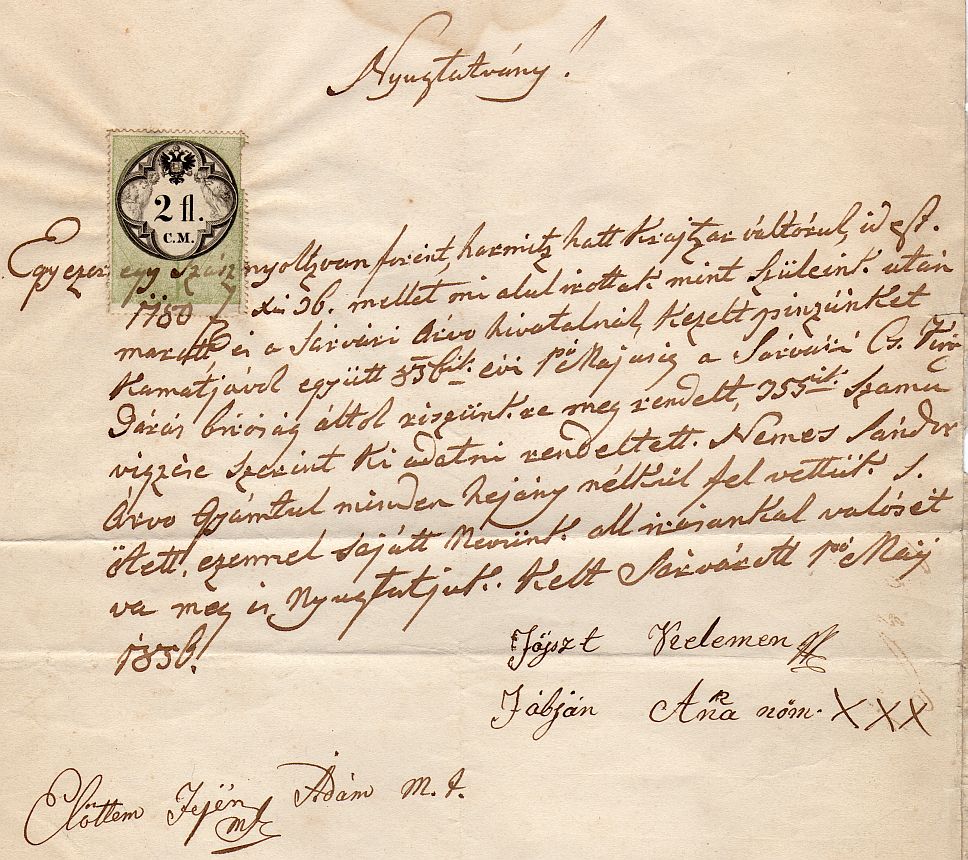 Nyugtatvány!
2 fl.
C.M.
Egy ezer egy szász nyoltzvan forint, harmitz hatt Krajtzar váltórul, id est.
1180 f Xr 36. mellet mi alulirottak mint Szüleink után
maratt és a Sárvári Árvo hivatalnál, Kezelt pinzünket
Kamatjával együtt 856ik évi 1ső Majusig a Sárvári Cs. Kir.
Járás biróság áltol rizünkre meg rendelt, 755ik Szamu
vigzése szerint Ki adatni rendeltett. Nemes Sándor
Árvo Gyámtul minden hejány nélkül fel vettük. S.
ötett, ezennel sajátt Nevünk all irásunkal valósét
va meg is Nyugtatjuk. Kelt Sárvárott 1ső Máj
1856.
Jójszt Keelemen
Jábján Aña nöm. XXX
Előttem Fején Ádám M. T.